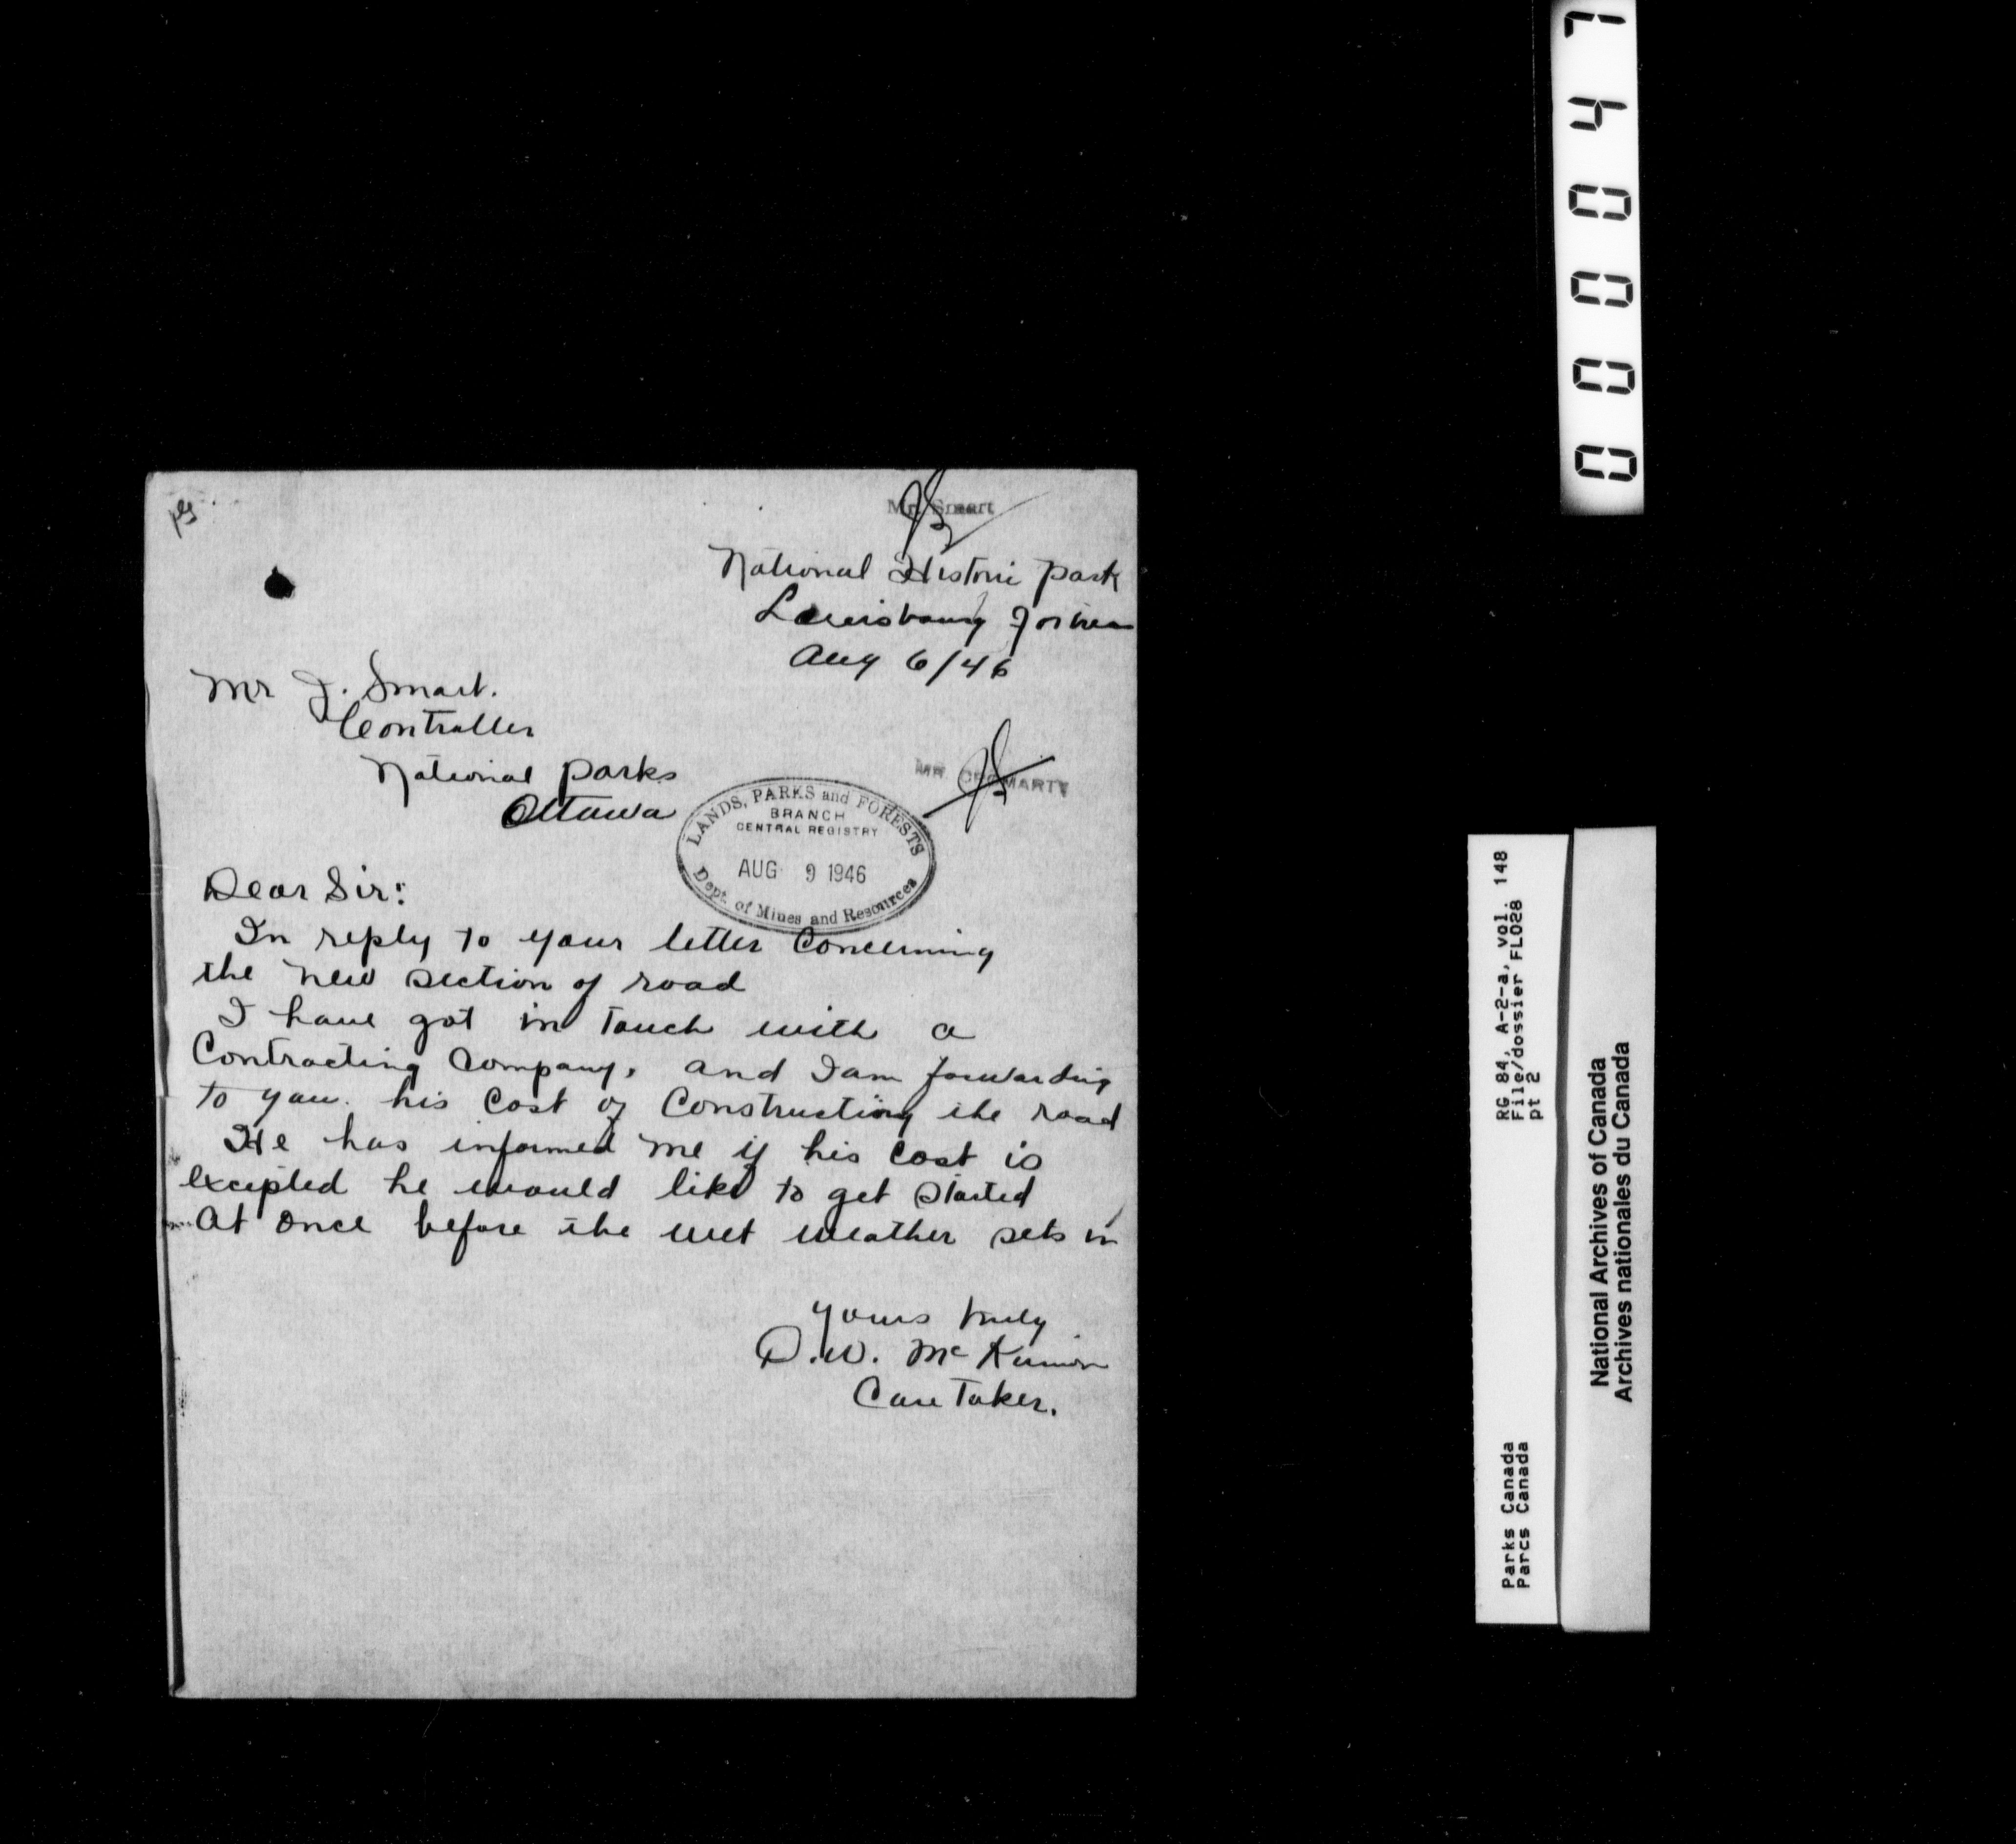 Mr. Smart
National Historic Park
Louisbourg Fortress
Aug 6/46
Mr J. Smart.
Controller
National Parks
Ottawa
MR. CROMARTY
LANDS, PARKS and FORESTS
BRANCH
CENTRAL REGISTRY
AUG 9 1946
Dept. of Mines and Resources
Dear Sir:
In reply to your letter Concerning
the new section of road
I have got in touch with a
Contracting Company, and I am forwarding
to you. his Cost of Constructing the road
He has informed me if his Cost is
excepted he would like to get started
At once before the wet weather sets in
Yours truly
D.W. McKinnon
Care Taker.
000047
RG 84, A-2-a, vol. 148
File/dossier FLO28
pt 2
Parks Canada
Parcs Canada
National Archives of Canada
Archives nationales du Canada